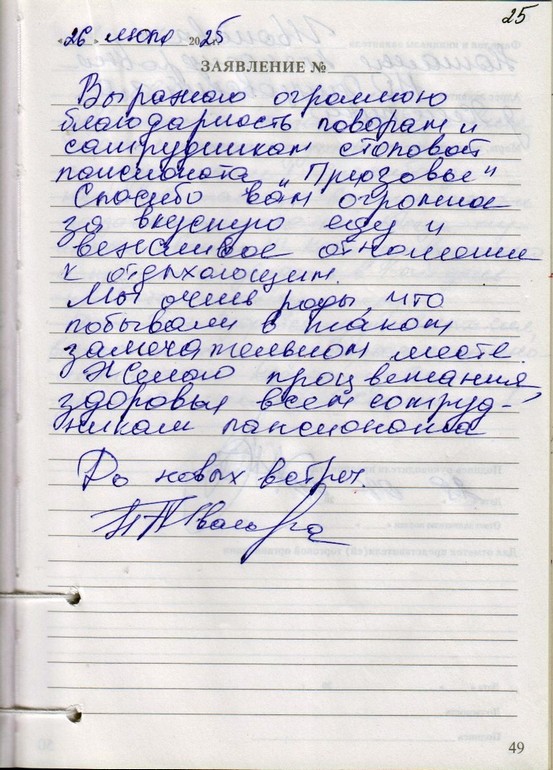 25
«26» июля 2025
ЗАЯВЛЕНИЕ №
Выражаю огромною
благодарность поворам и
сатрудникам столовой
пансионата "Приозовье"
Спасибо вам огромное
за вкусную еду и
вежливое отношение
к отдыхающим.
Мы очень рады, что
побывали в таком
замечательном месте.
Желаю процветания,
здоровья всем сотруд-
никам пансионата
До новых встреч.
49